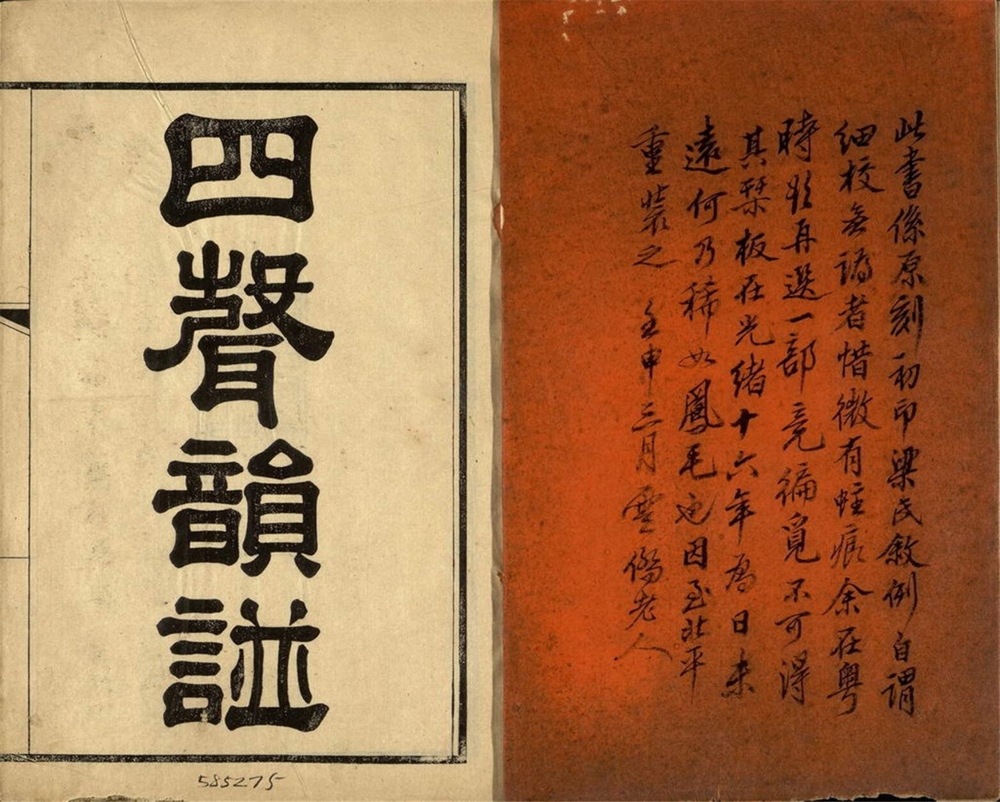 此書係原刻初印梁氏敘例自謂
細校無譌者惜微有蛀痕余在粤
時欲再選一部竟徧覓不可得
其栞板在光緒十六年為日未
遠何乃稀如鳳毛也因至北平
重裝之 壬申三月雲老人
四聲韻譜
585275